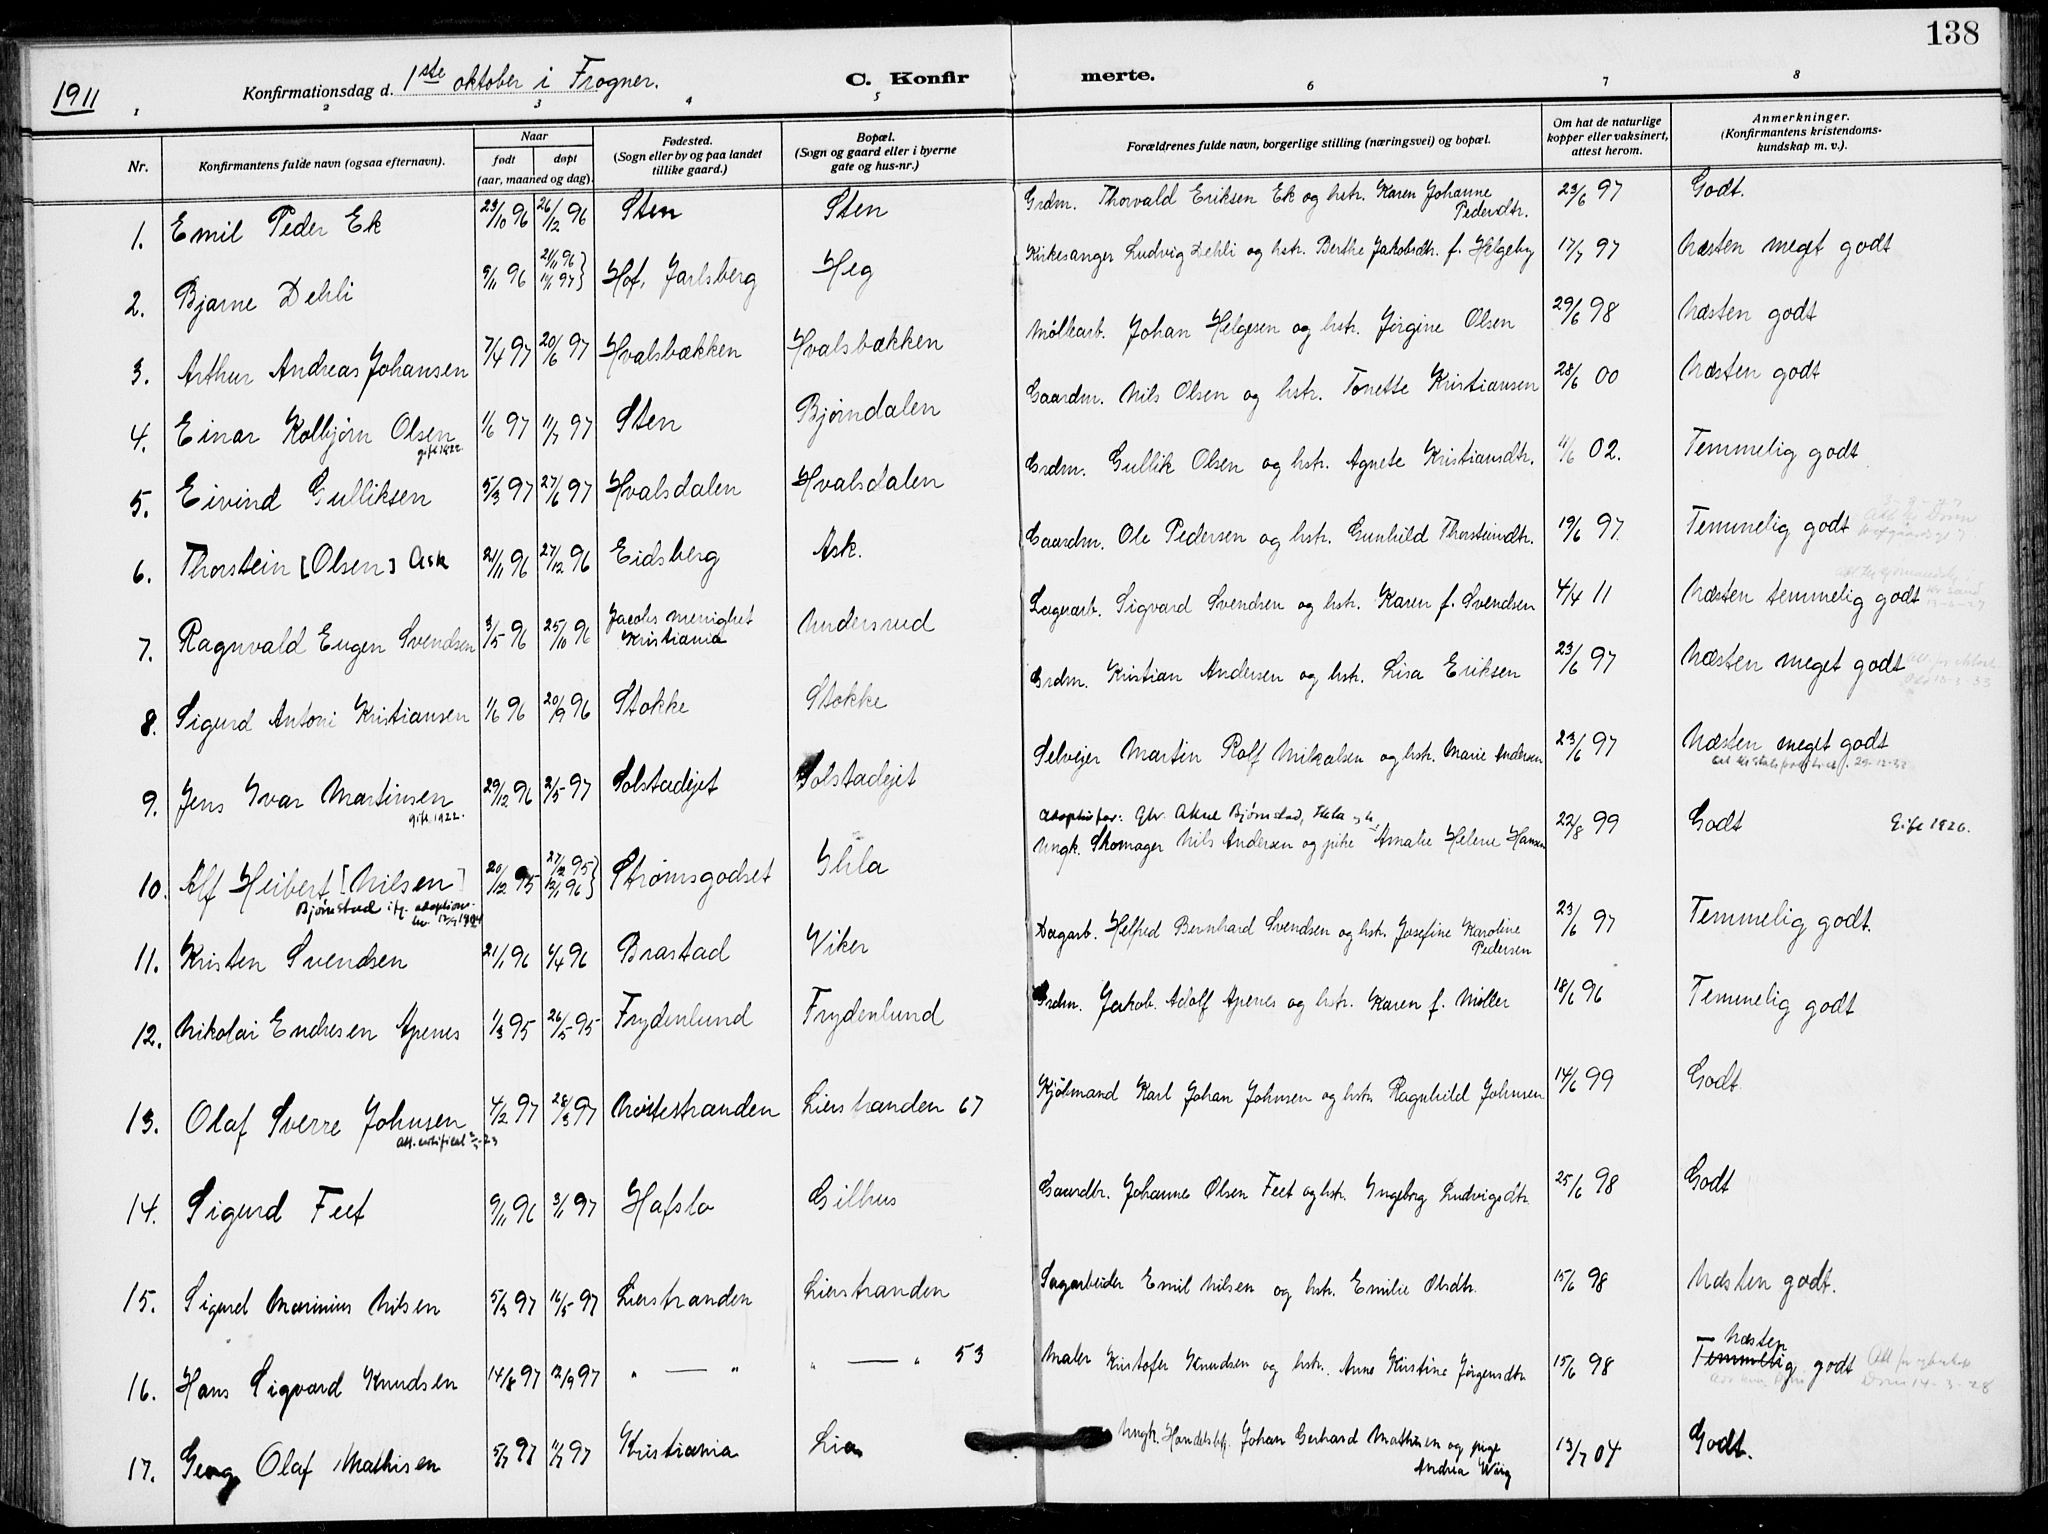 138
1911 Konfirmationsdag d. 1ste oktober i Frogner. C. Konfirmerte.
1 2 3 4 5 6 7 8
Nr. Konfirmantens fulde navn (ogsaa efternavn). Naar født døpt (aar, maaned og dag). Fødested. (Sogn eller by og paa landet tillike gaard.) Bopæl. (Sogn og gaard eller i byerne gate og hus-nr.) Forældrenes fulde navn, borgerlige stilling (næringsvei) og bopæl. Om hat de naturlige kopper eller vaksinert, attest herom. Anmerkninger. (Konfirmantens kristendoms-kundskap m. v.).
1. Emil Peder Ek 23/10 96 26/12 96 Sten Sten Grdm. Thorvald Eriksen Ek og hstr. Karen Johanne Pedersdtr. 23/6 97 Godt.
2. Bjarne Dehli 5/11 96 21/11 96 11/1 97 Hof, Jarlsberg Heg Kirkesanger Ludvig Dehli og hstr. Berthe Jakobsdtr. f. Helgeby 17/7 97 Næsten meget godt
3. Arthur Andreas Johansen 7/4 97 20/6 97 Hvalsbækken Hvalsbækken Møllearb. Johan Helgesen og hstr. Jørgine Olsen 29/6 98 Næsten godt
4. Einar Kolbjørn Olsen 1/6 97 11/7 97 Sten Bjørndalen Gaardm. Nils Olsen og hstr. Tonette Kristiansen 28/6 00 Næsten godt
gift 1922.
5. Eivind Gulliksen 5/3 97 27/6 97 Hvalsdalen Hvalsdalen Grdm. Gullik Olsen og hstr. Agnete Kristiansdtr. 11/6 02. Temmelig godt
6. Thorstein [Olsen] Ask 21/11 96 27/12 96 Eidsberg Ask. Gaardm. Ole Pedersen og hstr. Gunhild Thorsteindtr. 19/6 97. Temmelig godt
7. Ragnvald Eugen Svendsen 3/5 96 25/10 96 Jacobs menighet Kristiania Undersrud Lagerarb. Sigvard Svendsen og hstr. Karen f. Svendsen 4/4 11 Næsten temmelig godt
8. Sigurd Antoni Kristiansen 1/6 96 20/9 96 Stokke Stokke Grdm. Kristian Andersen og hstr. Lisa Eriksen 23/6 97 Næsten meget godt
9. Jens Ivar Martinsen 29/12 96 2/5 97 Solstadejet Solstadejet Selvejer Martin Rolf Mikalsen og hstr. Marie Andersen 23/6 97 Næsten meget godt
gift 1922.
10. Alf Heibert [Nilsen] 20/12 95 27/12 95 12/1 96 Strømsgodset Ghila Ungk. Skomager Nils Andersen og pike Amalie Helene Hansen 22/8 99 Godt Gift 1926.
Bjørnstad
11. Kristen Svendsen 21/1 96 4/4 96 Brastad Viker Dagarb. Helfred Bernhard Svendsen og hstr. Josefine Karoline Pedersen 23/6 97 Temmelig godt.
12. Nikolai Endresen Apenes 1/3 95 26/5 95 Frydenlund Frydenlund Grdm. Jakob Adolf Apenes og hstr. Karen f. Møller 18/6 96 Temmelig godt
13. Olaf Sverre Johnsen 4/2 97 28/3 97 Nøstestranden Lierstranden 67 Kjølmand Karl Johan Johnsen og hstr. Ragnhild Johnsen 14/6 99 Godt
14. Sigurd Feet 9/11 96 3/1 97 Hafslo Gilhus Gaardbr. Johannes Olsen Feet og hstr. Ingeborg Ludvigsdtr. 25/6 98 Godt
15. Sigurd Marinius Nilsen 5/3 97 16/5 97 Lierstranden Lierstranden Sagarbeider Emil Nilsen og hstr. Emilie Olsdtr. 15/6 98 Næsten godt.
16. Hans Sigvard Knudsen 14/8 97 12/9 97 " — " " — " 53 Maler Kristofer Knudsen og hstr. Anne Kristine Jørgensdtr. 15/6 98 Næsten Temmelig godt
17. Georg Olaf Mathisen 5/7 97 11/7 97 Kristiania Lia Ungk. Handelsbetj. Johan Gerhard Mathisen og pige Andrea Wiig 13/7 04 Godt.